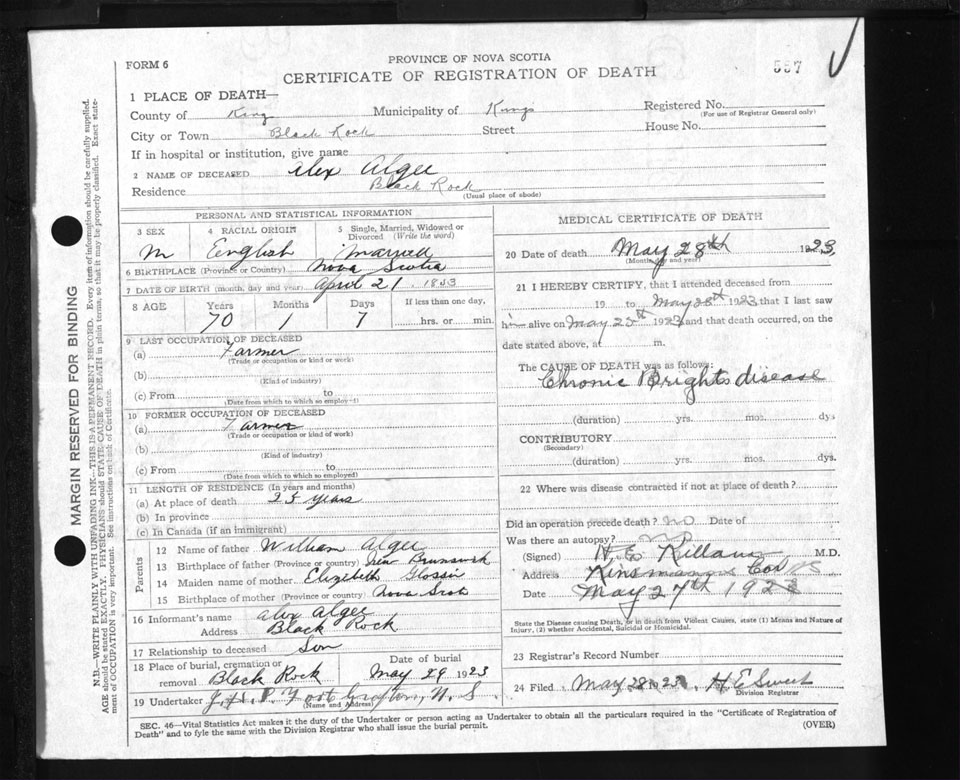 FORM 6
PROVINCE OF NOVA SCOTIA
CERTIFICATE OF REGISTRATION OF DEATH
557
1 PLACE OF DEATH—
County of Kings Municipality of Kings Registered No.
(For use of Registrar General only)
City or Town Black Rock Street House No.
If in hospital or institution, give name
2 NAME OF DECEASED Alex Algee
Residence Black Rock
(Usual place of abode)
PERSONAL AND STATISTICAL INFORMATION
3 SEX 4 RACIAL ORIGIN 5 Single, Married, Widowed or Divorced (Write the word)
M English Married
6 BIRTHPLACE (Province or Country) Nova Scotia
7 DATE OF BIRTH (month, day and year) April 21, 1853
8 AGE Years Months Days If less than one day,
70 1 7 hrs. or min.
9 LAST OCCUPATION OF DECEASED
(a) Farmer
(Trade or occupation or kind of work)
(b)
(Kind of industry)
(c) From to
(Date from which to which so employed)
10 FORMER OCCUPATION OF DECEASED
(a) Farmer
(Trade or occupation or kind of work)
(b)
(Kind of industry)
(c) From to
(Date from which to which so employed)
11 LENGTH OF RESIDENCE (In years and months)
(a) At place of death 25 years
(b) In province
(c) In Canada (if an immigrant)
Parents
12 Name of father William Algee
13 Birthplace of father (Province or country) New Brunswick
14 Maiden name of mother Elizebeth
15 Birthplace of mother (Province or country) Nova Scotia
16 Informant's name Alex Algee
Address Black Rock
17 Relationship to deceased Son
18 Place of burial, cremation or removal Black Rock Date of burial May 29 1923
19 Undertaker Foot Grafton, N. S.
(Name and Address)
MEDICAL CERTIFICATE OF DEATH
20 Date of death May 28th 1923
(Month, day and year)
21 I HEREBY CERTIFY, that I attended deceased from
19 to May 28th 1923 that I last saw
him alive on May 25th 1923 and that death occurred, on the
date stated above, at m.
The CAUSE OF DEATH was as follows:
Chronic Brights disease
(duration) yrs. mos. dys
CONTRIBUTORY
(Secondary)
(duration) yrs. mos. dys.
22 Where was disease contracted if not at place of death?
Did an operation precede death? no Date of
Was there an autopsy? no
(Signed) H. E. Killam M.D.
Address Kinsmans Cor NS
Date May 27th 1923
State the Disease causing Death, or in death from Violent Causes, state (1) Means and Nature of Injury, (2) whether Accidental, Suicidal or Homicidal.
23 Registrar's Record Number
24 Filed May 28 1923 H E Sweet
Division Registrar
SEC. 46—Vital Statistics Act makes it the duty of the Undertaker or person acting as Undertaker to obtain all the particulars required in the "Certificate of Registration of
Death" and to fyle the same with the Division Registrar who shall issue the burial permit. (OVER)
MARGIN RESERVED FOR BINDING
N.B.—WRITE PLAINLY WITH UNFADING INK—THIS IS A PERMANENT RECORD. Every item of information should be carefully supplied.
AGE should be stated EXACTLY. PHYSICIANS should STATE CAUSE OF DEATH in plain terms, so that it may be properly classified. Exact statement of OCCUPATION is very important. See instructions on back of Certificate.